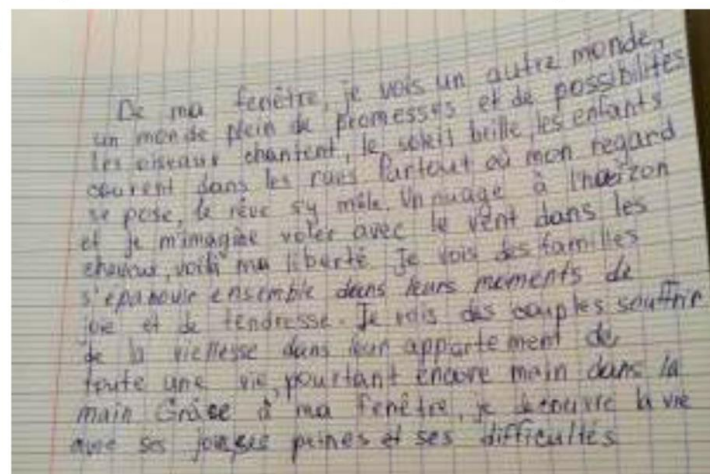 De ma fenêtre, je vois un autre monde,
un monde plein de promesses et de possibilités
les oiseaux chantent, le soleil brille, les enfants
courent dans les rues Partout où mon regard
se pose, le rêve s'y mêle. Un nuage à l'horizon
et je m'imagine voler avec le vent dans les
cheveux, voilà ma liberté. Je vois des familles
s'épanouir ensemble dans leurs moments de
joie et de tendresse. Je vois des couples souffrir
de la viellesse dans leur appartement de
toute une vie, pourtant encore main dans la
main Grâce à ma fenêtre, je découvre la vie
avec ses joies, ses peines et ses difficultés